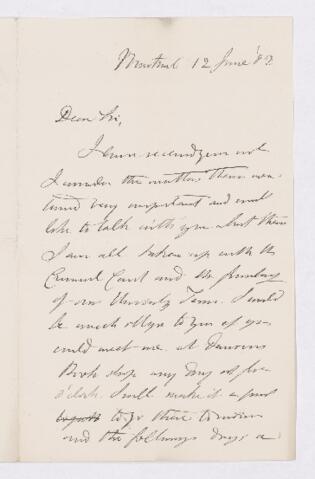 Montreal 12 June '89
Dear Sir,
I have received your note
I consider the matters therein men-
tioned very important and will
like to talk with you about them
I am all taken up with the
Criminal Court and the
of our University Term. I would
be much obliged to you if you
could meet me at Dawsons
Book shop any day at five
o'clock. I will make it a point
to go there tomorrow
and the following days a